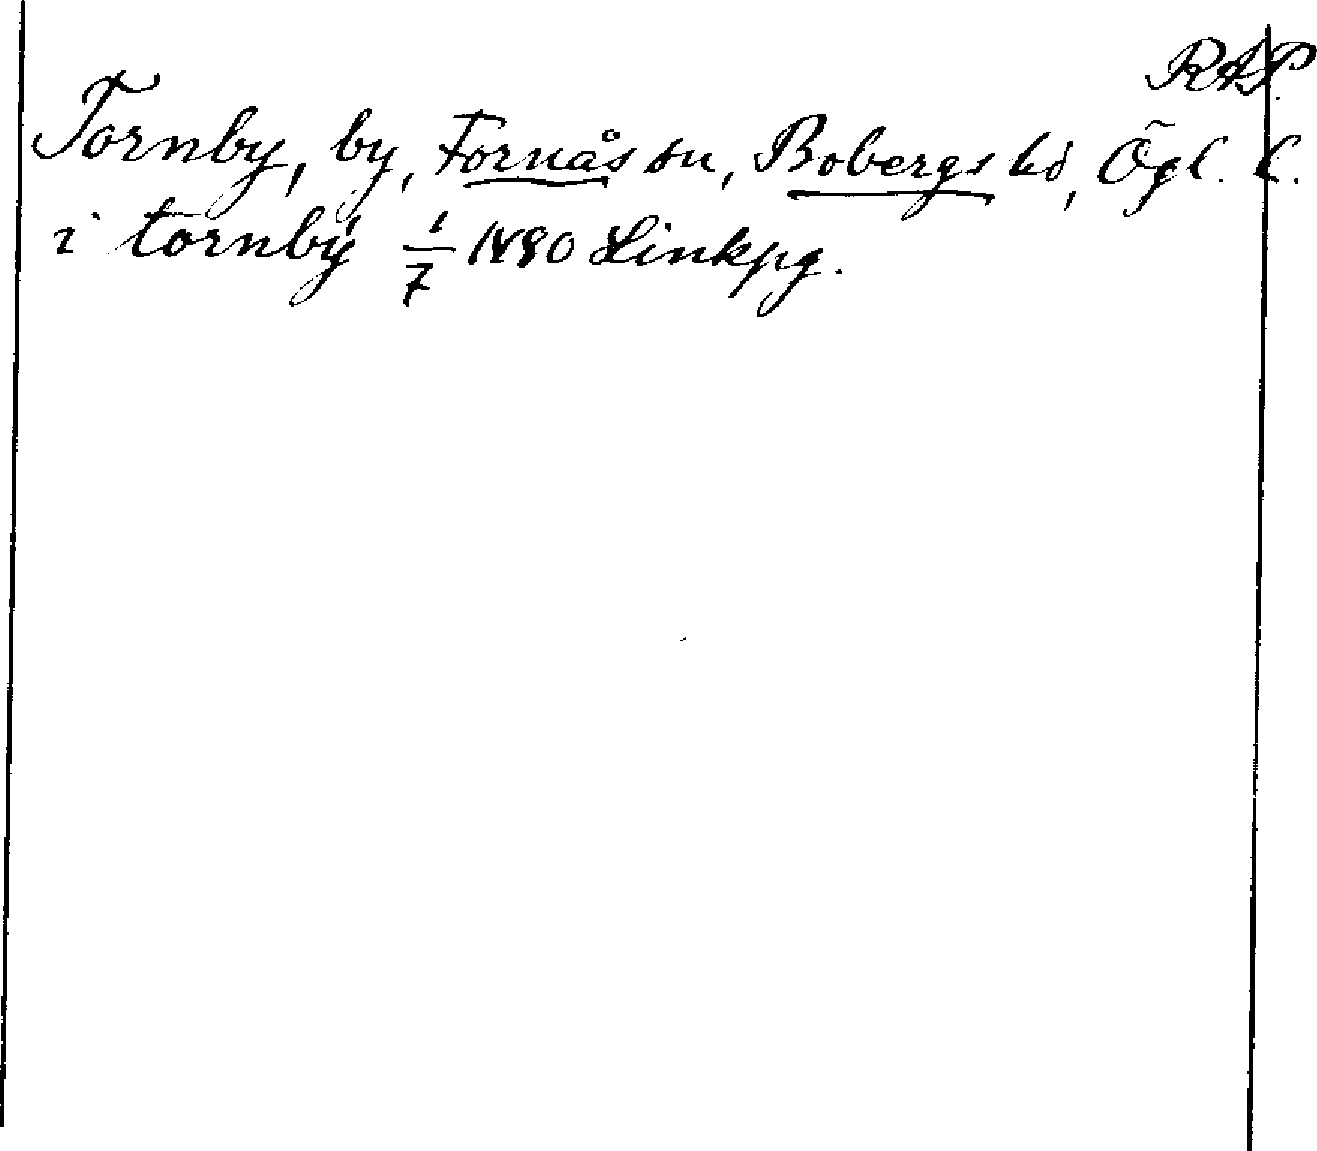 RAP.
Tornby, by, Fornåsa sn, Bobergs hd, Ögl. l.
i tornbÿ 1/7 1490 Linkpg.